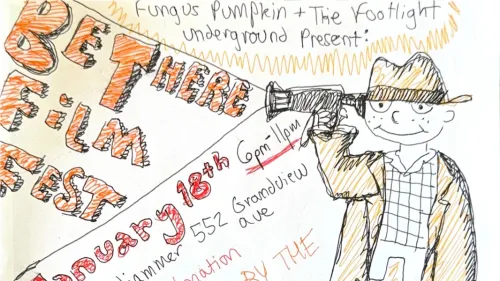 Fungus Pumpkin + The Footlight
underground Present:
BE THERE
FiLM
FEST
January 18th 6pm-11pm
552 Grandview
ave
BY THE